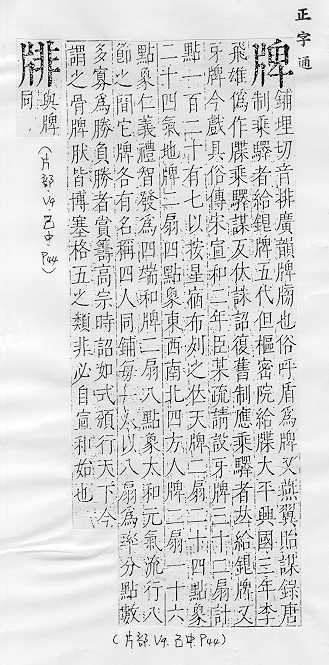 正字通
牌
鋪埋切音排廣韻牌牓也俗呼盾爲牌又燕翼貽謀錄唐
制乘驛者給銀牌五代但樞密院給牒大平興國三年李
飛雄僞作牒乘驛謀反伏誅詔復舊制應乘驛者並給銀牌又
牙牌今戲具俗傳宋宣和二年臣某疏請設牙牌三十二扇計
點一百二十有七以按星宿布列之位天牌二扇二十四點象
二十四氣地牌二扇四點象東西南北四方人牌二扇一十六
點象仁義禮智發爲四端和牌二扇八點象太和元氣流行八
節之間它牌各有名稱四人同鋪每一人以八扇爲率分點數
多寡爲勝負勝者賞籌高宗時詔如式頒行天下今
謂之骨牌狀皆博塞格五之類非必自宣和始也
𤗏
與牌
同
(片部 V9. 己中. P44)
(片部. V9. 己中. P44)